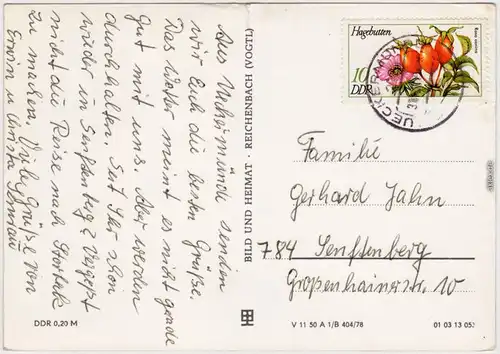 Aus Ueckermünde senden
wir Euch die besten Grüße.
Das Wetter meint es nicht gerade
gut mit uns. Aber werden
durchhalten. Seit Ihr schon
wieder in Senftenberg? Vergeßt
nicht die Reise nach Storkow
zu machen. Viele Grüße von
Erwin u. Christa
DDR 0,20 M
BILD UND HEIMAT · REICHENBACH (VOGTL)
Hagebutten
10
DDR
UECKERMÜN
Familie
Gerhard Jahn
784 Senftenberg
Großenhainerstr. 10
V 11 50 A 1/B 404/78
01 03 13 052